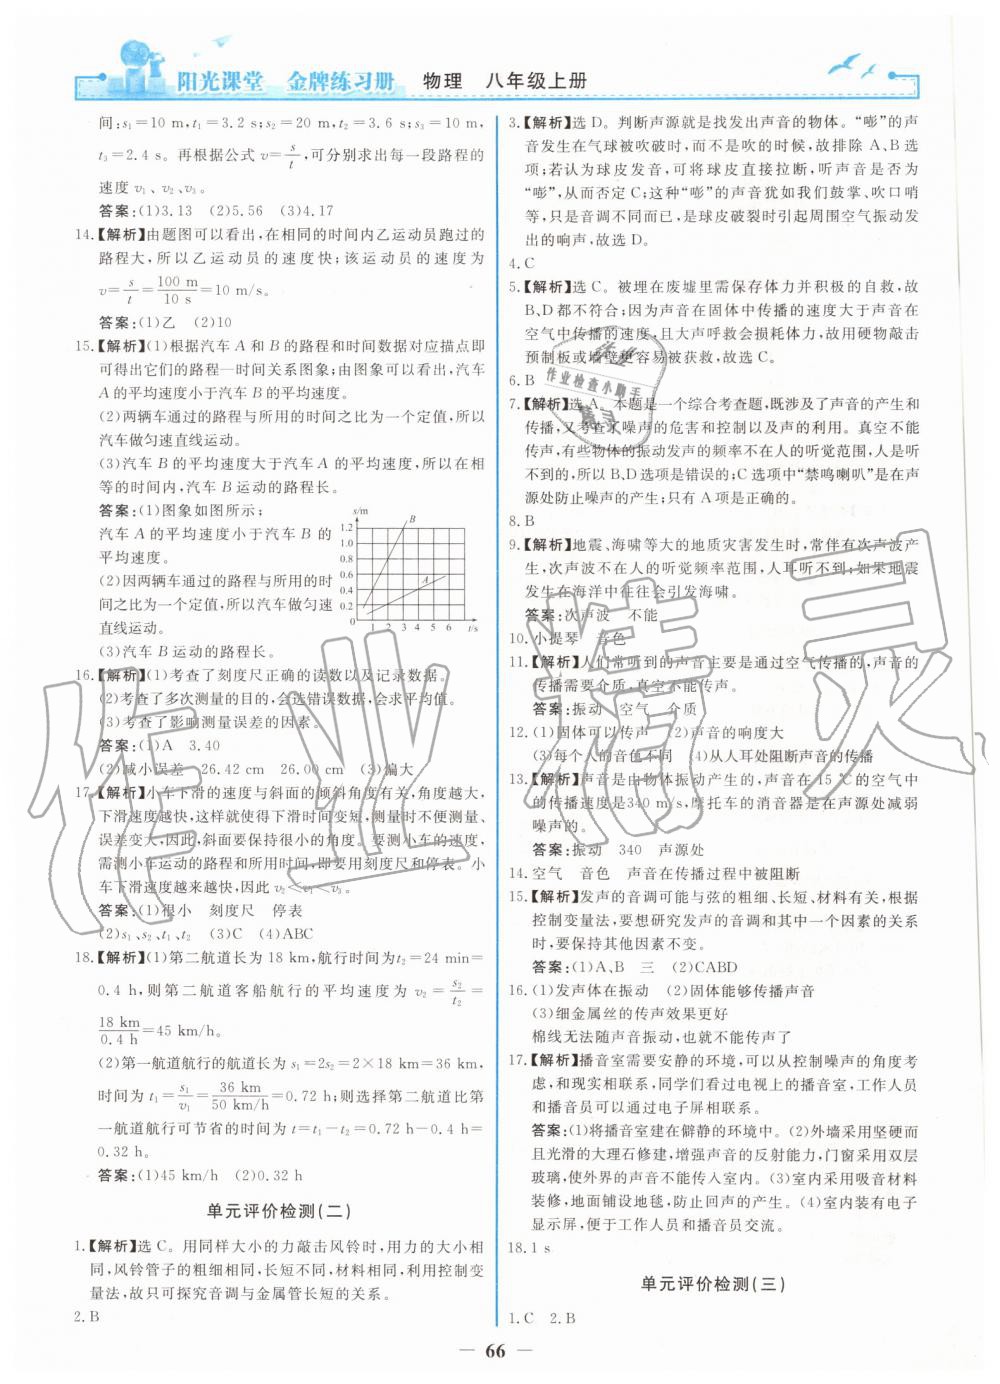 阳光课堂 金牌练习册 物理 八年级上册
间:s₁=10 m,t₁=3.2 s;s₂=20 m,t₂=3.6 s;s₃=10 m,
t₃=2.4 s。再根据公式 v=s/t,可分别求出每一段路程的
速度 v₁、v₂、v₃。
答案:(1)3.13 (2)5.56 (3)4.17
14.【解析】由题图可以看出,在相同的时间内乙运动员跑过的
路程大,所以乙运动员的速度快;该运动员的速度为
v=s/t=100 m/10 s=10 m/s。
答案:(1)乙 (2)10
15.【解析】(1)根据汽车 A 和 B 的路程和时间数据对应描点即
可得出它们的路程—时间关系图象;由图象可以看出,汽车
A 的平均速度小于汽车 B 的平均速度。
(2)两辆车通过的路程与所用的时间之比为一个定值,所以
汽车做匀速直线运动。
(3)汽车 B 的平均速度大于汽车 A 的平均速度,所以在相
等的时间内,汽车 B 运动的路程长。
答案:(1)图象如图所示;
汽车 A 的平均速度小于汽车 B 的
平均速度。
(2)因两辆车通过的路程与所用的时
间之比为一个定值,所以汽车做匀速
直线运动。
(3)汽车 B 运动的路程长。
s/m
1.2
1.0
0.8
0.6
0.4
0.2
B
A
0 1 2 3 4 5 6 t/s
16.【解析】(1)考查了刻度尺正确的读数以及记录数据。
(2)考查了多次测量的目的,会选错误数据,会求平均值。
(3)考查了影响测量误差的因素。
答案:(1)A 3.40
(2)减小误差 26.42 cm 26.00 cm (3)偏大
17.【解析】小车下滑的速度与斜面的倾斜角度有关,角度越大,
下滑速度越快,这样就使得下滑时间变短,测量时不便测量、
误差变大,因此,斜面要保持很小的角度。要测小车的速度,
需测小车运动的路程和所用时间,即要用刻度尺和停表。小
车下滑速度越来越快,因此 v₂<v₁<v₃。
答案:(1)很小 刻度尺 停表
(2)s₁、s₂、t₁、t₂ (3)C (4)ABC
18.【解析】(1)第二航道长为 18 km,航行时间为t₂=24 min=
0.4 h,则第二航道客船航行的平均速度为 v₂=s₂/t₂=
18 km/0.4 h=45 km/h。
(2)第一航道航行的航道长为 s₁=2s₂=2×18 km=36 km,
时间为 t₁=s₁/v₁=36 km/50 km/h=0.72 h;则选择第二航道比第
一航道航行可节省的时间为 t=t₁-t₂=0.72 h-0.4 h=
0.32 h。
答案:(1)45 km/h (2)0.32 h
单元评价检测(二)
1.【解析】选 C。用同样大小的力敲击风铃时,用力的大小相
同,风铃管子的粗细相同,长短不同,材料相同,利用控制变
量法,故只可探究音调与金属管长短的关系。
2.B
3.【解析】选 D。判断声源就是找出发出声音的物体。“嘭”的声
音发生在气球被吹破时,而不是吹的时候,故排除 A、B 选
项;若认为球皮发声,可将球皮直接拉断,听声音是否为
“嘭”,从而否定 C;这种“嘭”的声音犹如我们鼓掌、吹口哨
等,只是音调不同而已,是球皮破裂时引起周围空气振动发
出的响声,故选 D。
4.C
5.【解析】选 C。被埋在废墟里需保存体力并积极的自救,故
B、D 都不符合;因为声音在固体中传播的速度大于声音在
空气中传播的速度,且大声呼救会损耗体力,故用硬物敲击
预制板或墙壁更容易被获救,故选 C。
6.B
7.【解析】选 A。本题是一个综合考查题,既涉及了声音的产生和
传播,又考查了噪声的危害和控制以及声的利用。真空不能
传声,有些物体的振动发声的频率不在人的听觉范围,人是听
不到的,所以 B、D 选项是错误的;C 选项中“禁鸣喇叭”是在声
源处防止噪声的产生;只有 A 项是正确的。
8.B
9.【解析】地震、海啸等大的地质灾害发生时,常伴有次声波产
生,次声波不在人的听觉频率范围,人耳听不到;如果地震
发生在海洋中往往会引发海啸。
答案:次声波 不能
10.小提琴 音色
11.【解析】人们常听到的声音主要是通过空气传播的,声音的
传播需要介质,真空不能传声。
答案:振动 空气 介质
12.(1)固体可以传声 (2)声音的响度大
(3)每个人的音色不同 (4)从人耳处阻断声音的传播
13.【解析】声音是由物体振动产生的,声音在 15 ℃的空气中
的传播速度是340 m/s,摩托车的消音器是在声源处减弱
噪声的。
答案:振动 340 声源处
14.空气 音色 声音在传播过程中被阻断
15.【解析】发声的音调可能与弦的粗细、长短、材料有关,根据
控制变量法,要想研究发声的音调和其中一个因素的关系
时,要保持其他因素不变。
答案:(1)A、B 三 (2)CABD
16.(1)发声体在振动 (2)固体能够传播声音
(3)细金属丝的传声效果更好
棉线无法随声音振动,也就不能传声了
17.【解析】播音室需要安静的环境,可以从控制噪声的角度考
虑,和现实相联系,同学们看过电视上的播音室,工作人员
和播音员可以通过电子屏相联系。
答案:(1)将播音室建在僻静的环境中。(2)外墙采用坚硬而
且光滑的大理石修建,增强声音的反射能力,门窗采用双层
玻璃,使外界的声音不能传入室内。(3)室内采用吸音材料
装修,地面铺设地毯,防止回声的产生。(4)室内装有电子
显示屏,便于工作人员和播音员交流。
18.1 s
单元评价检测(三)
1.C 2.B
66
作业检查小助手
作业精灵